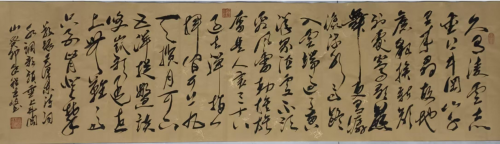 久有凌云志
重上井冈山千
里来寻故地
旧貌变新颜
到处莺歌燕
舞更有潺
潺流水高路
入云端过了黄
洋界险处不须
看风雷动旌旗
奋是人寰三十八
年过去弹指一
挥间可上九
天揽月可下
五洋捉鳖谈
笑凯歌还世
上无难事
只要肯登攀
毛泽东诗词
水调歌头重上井冈
山